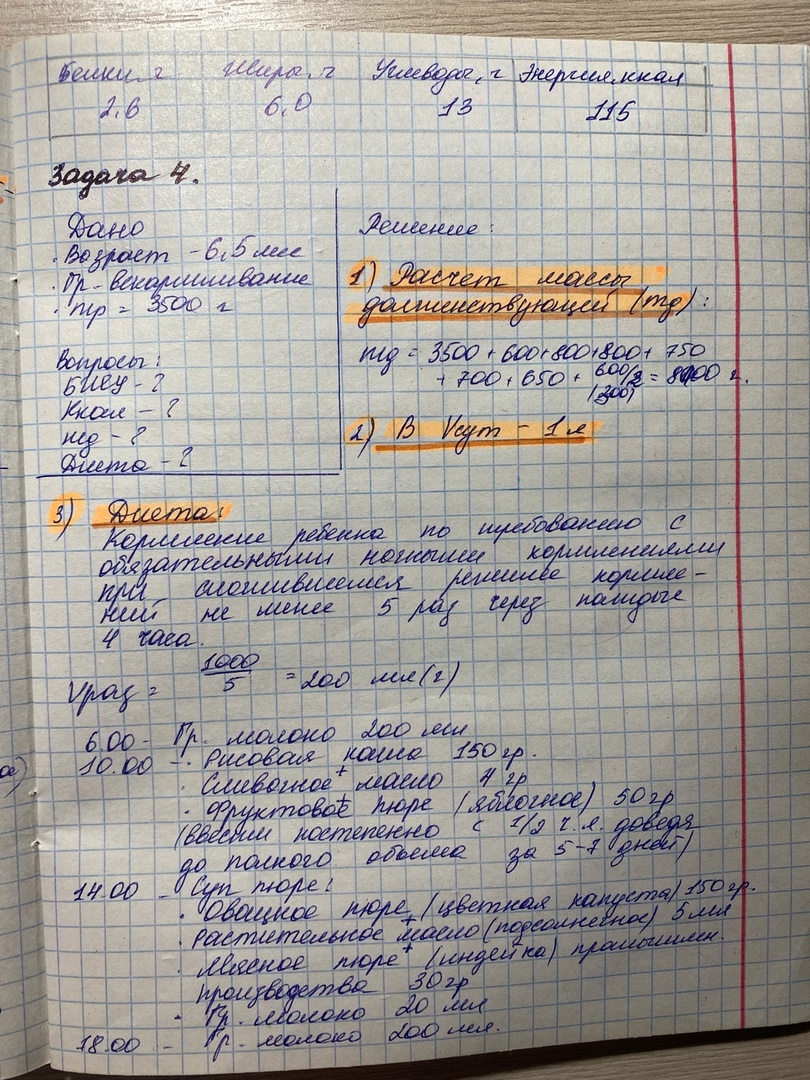 Белки, г Жиры, г Углеводы, г Энергия, ккал
2,6 6,0 13 115
Задача 4.
Дано
· Возраст – 6,5 мес
· Гр. вскармливание
· mр = 3500 г
Вопросы:
БЖУ – ?
Ккал – ?
mд – ?
Диета – ?
Решение:
1) Расчет массы
долженствующей (mд):
mд = 3500 + 600 + 800 + 800 + 750
+ 700 + 650 + 600/2 (300) = 8100 г.
2) В Vсут – 1 л
3) Диета:
Кормление ребенка по требованию с
обязательными ночными кормлениями
при сложившемся режиме кормле-
ний не менее 5 раз через каждые
4 часа.
Vраз = 1000/5 = 200 мл (г)
6.00 – Гр. молоко 200 мл
10.00 – · Рисовая каша 150 гр.
+
· Сливочное масло 4 гр
+
· Фруктовое пюре (яблочное) 50 гр
(ввести постепенно с 1/2 ч.л. доведя
до полного объема за 5-7 дней)
14.00 – Суп пюре:
· Овощное пюре (цветная капуста) 150 гр.
+
· Растительное масло (подсолнечное) 5 мл
+
· Мясное пюре (индейка) промышлен.
производства 30 гр
· Гр. молоко 20 мл
18.00 – Гр. молоко 200 мл.